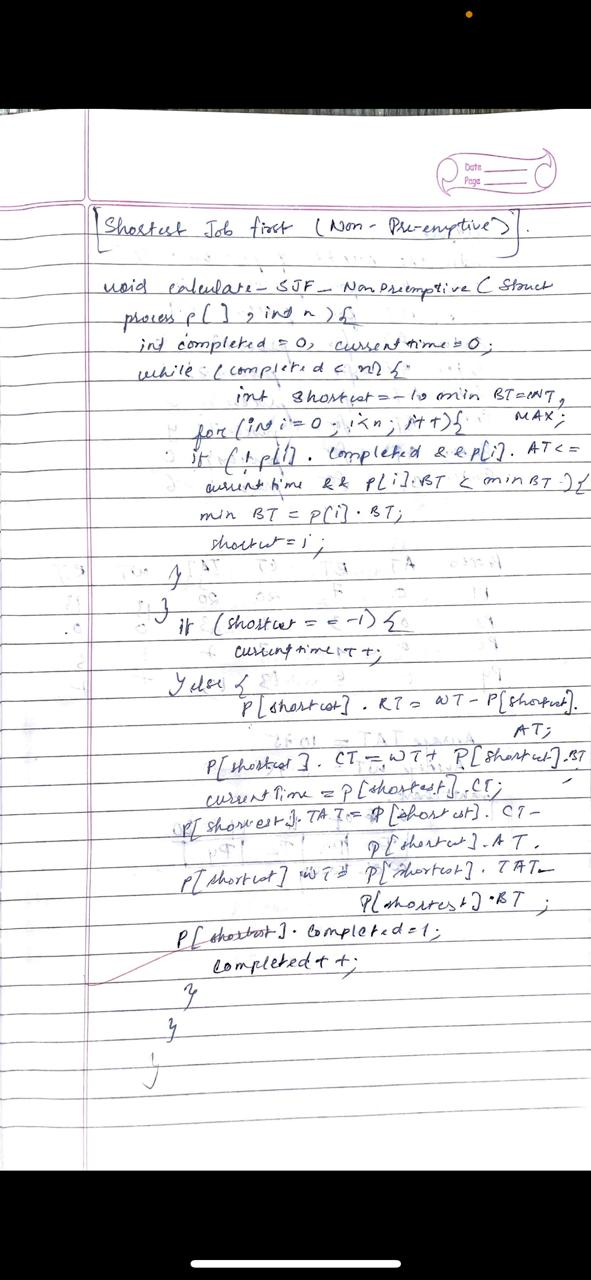 Date
Page
[Shortest Job first (Non-Pre-emptive)].
void calculate-SJF-NonPreemptive (Struct
process p[], int n){
int completed = 0, current time = 0;
while (completed < n){
int shortest = -1, min BT = INT_
MAX;
for (int i = 0; i<n; i++){
if (!p[i]. completed && p[i]. AT <=
current time && p[i].BT < min BT){
min BT = p[i].BT;
shortest = i;
}
}
if (shortest = = -1){
current time ++;
} else {
P[shortest]. RT = WT - P[shortest].
AT;
P[shortest]. CT = WT + P[shortest].BT
;
current Time = p[shortest].CT;
P[shortest].TAT = P[shortest]. CT -
P[shortest].AT.
P[shortest] WT = P[shortest]. TAT -
P[shortest].BT ;
P[shortest]. completed = 1;
completed ++;
}
}
}